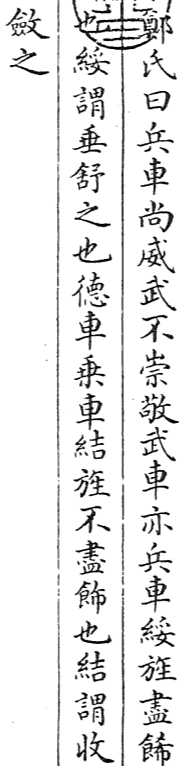 鄭氏曰兵車尚威武不崇敬武車亦兵車綏旌盡飾
也綏謂垂舒之也德車乗車結旌不盡飾也結謂收
斂之